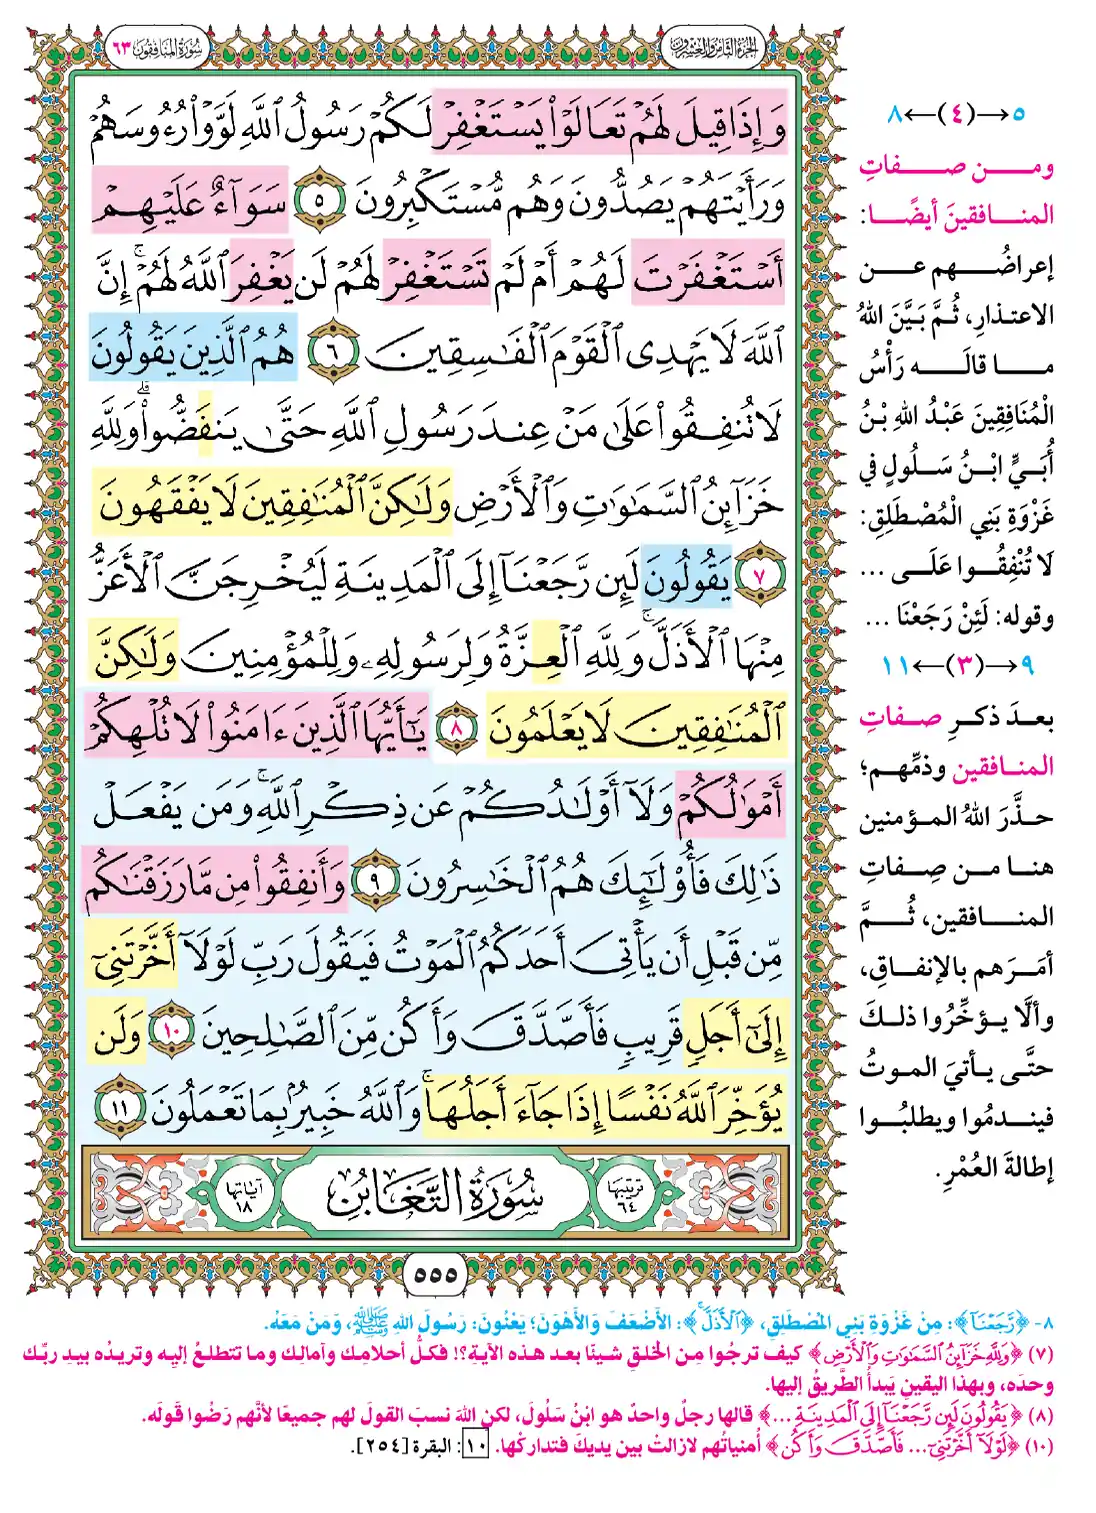 الجزء الثامن والعشرون
سورة المنافقون ٦٣
وَإِذَا قِيلَ لَهُمْ تَعَالَوْا۟ يَسْتَغْفِرْ لَكُمْ رَسُولُ ٱللَّهِ لَوَّوْا۟ رُءُوسَهُمْ
وَرَأَيْتَهُمْ يَصُدُّونَ وَهُم مُّسْتَكْبِرُونَ ٥ سَوَآءٌ عَلَيْهِمْ
أَسْتَغْفَرْتَ لَهُمْ أَمْ لَمْ تَسْتَغْفِرْ لَهُمْ لَن يَغْفِرَ ٱللَّهُ لَهُمْ ۚ إِنَّ
ٱللَّهَ لَا يَهْدِى ٱلْقَوْمَ ٱلْفَـٰسِقِينَ ٦ هُمُ ٱلَّذِينَ يَقُولُونَ
لَا تُنفِقُوا۟ عَلَىٰ مَنْ عِندَ رَسُولِ ٱللَّهِ حَتَّىٰ يَنفَضُّوا۟ ۗ وَلِلَّهِ
خَزَآئِنُ ٱلسَّمَـٰوَٰتِ وَٱلْأَرْضِ وَلَـٰكِنَّ ٱلْمُنَـٰفِقِينَ لَا يَفْقَهُونَ
٧ يَقُولُونَ لَئِن رَّجَعْنَآ إِلَى ٱلْمَدِينَةِ لَيُخْرِجَنَّ ٱلْأَعَزُّ
مِنْهَا ٱلْأَذَلَّ ۚ وَلِلَّهِ ٱلْعِزَّةُ وَلِرَسُولِهِۦ وَلِلْمُؤْمِنِينَ وَلَـٰكِنَّ
ٱلْمُنَـٰفِقِينَ لَا يَعْلَمُونَ ٨ يَـٰٓأَيُّهَا ٱلَّذِينَ ءَامَنُوا۟ لَا تُلْهِكُمْ
أَمْوَٰلُكُمْ وَلَآ أَوْلَـٰدُكُمْ عَن ذِكْرِ ٱللَّهِ ۚ وَمَن يَفْعَلْ
ذَٰلِكَ فَأُو۟لَـٰٓئِكَ هُمُ ٱلْخَـٰسِرُونَ ٩ وَأَنفِقُوا۟ مِن مَّا رَزَقْنَـٰكُم
مِّن قَبْلِ أَن يَأْتِىَ أَحَدَكُمُ ٱلْمَوْتُ فَيَقُولَ رَبِّ لَوْلَآ أَخَّرْتَنِىٓ
إِلَىٰٓ أَجَلٍ قَرِيبٍ فَأَصَّدَّقَ وَأَكُن مِّنَ ٱلصَّـٰلِحِينَ ١٠ وَلَن
يُؤَخِّرَ ٱللَّهُ نَفْسًا إِذَا جَآءَ أَجَلُهَا ۚ وَٱللَّهُ خَبِيرٌۢ بِمَا تَعْمَلُونَ ١١
ترتيبها ٦٤ سُورَةُ التَّغَابُنِ آياتها ١٨
٥٥٥
٥→(٤)←٨
ومن صفاتِ
المنافقينَ أيضًا:
إعراضُهم عن
الاعتذارِ، ثُمَّ بَيَّنَ اللهُ
ما قالَه رَأْسُ
الْمُنَافِقِينَ عَبْدُ اللهِ بْنُ
أُبَيٍّ ابْنُ سَلُولٍ في
غَزْوَةِ بَنِي الْمُصْطَلِقِ:
لَا تُنْفِقُوا عَلَى ...
وقوله: لَئِنْ رَجَعْنَا ...
٩→(٣)←١١
بعدَ ذكرِ صفاتِ
المنافقين وذمِّهم؛
حذَّرَ اللهُ المؤمنين
هنا من صِفاتِ
المنافقين، ثُمَّ
أمَرَهم بالإنفاقِ،
وألَّا يؤخِّرُوا ذلكَ
حتَّى يأتيَ الموتُ
فيندمُوا ويطلبُوا
إطالةَ العُمْرِ.
٨- ﴿رَّجَعْنَآ﴾: مِنْ غَزْوَةِ بَنِي المُصْطَلِقِ، ﴿ٱلْأَذَلَّ ۚ﴾: الأَضْعَفَ وَالأَهْوَنَ؛ يَعْنُونَ: رَسُولَ اللهِ ﷺ، وَمَنْ مَعَهُ.
(٧) ﴿وَلِلَّهِ خَزَآئِنُ ٱلسَّمَـٰوَٰتِ وَٱلْأَرْضِ﴾ كيف ترجُوا مِن الخلقِ شيئًا بعد هذه الآيةِ؟! فكلُّ أحلامِك وآمالِك وما تتطلعُ إليه وتريدُه بيدِ ربِّك
وحدَه، وبهذا اليقينِ يَبدأُ الطَّريقُ إليها.
(٨) ﴿يَقُولُونَ لَئِن رَّجَعْنَآ إِلَى ٱلْمَدِينَةِ ...﴾ قالها رجلٌ واحدٌ هو ابْنُ سَلُولَ، لكن اللهَ نسبَ القولَ لهم جميعًا لأنَّهم رَضُوا قَولَه.
(١٠) ﴿لَوْلَآ أَخَّرْتَنِىٓ ... فَأَصَّدَّقَ وَأَكُن﴾ أُمنياتُهم لازالتْ بين يديكَ فتداركْها. ١٠: البقرة [٢٥٤].